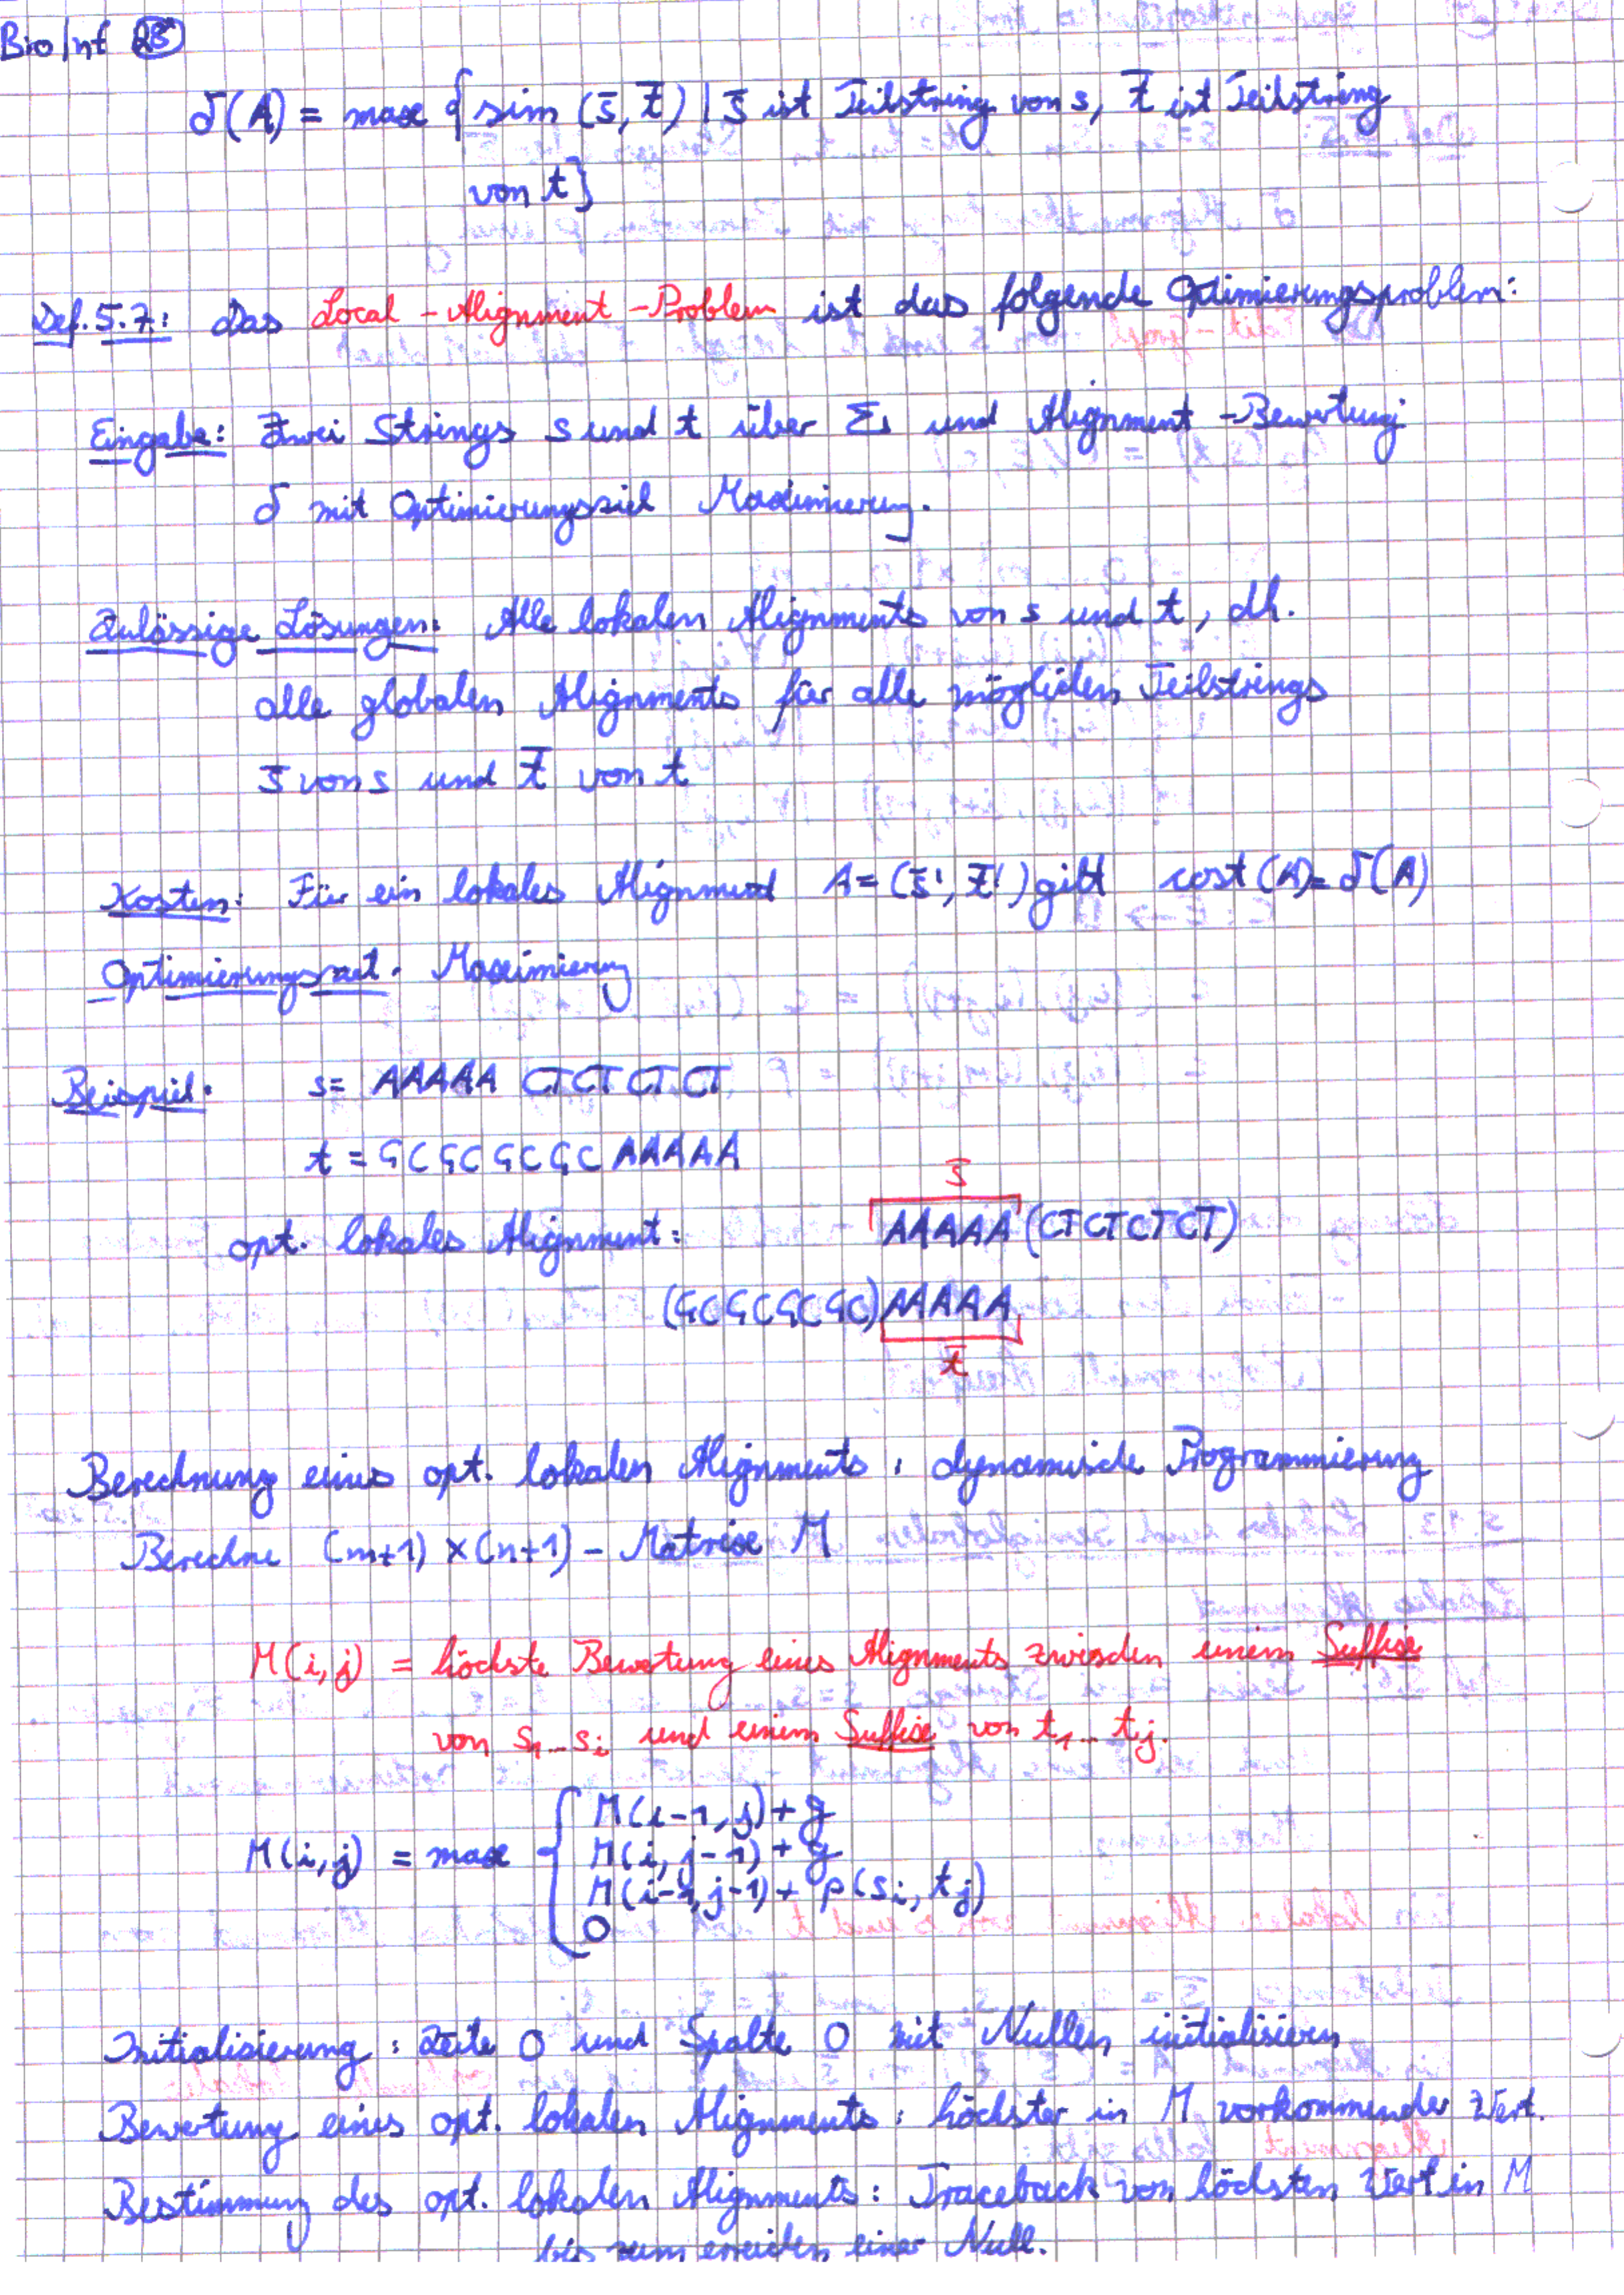 BioInf 25
δ(A) = max { sim (s̄, t̄) | s̄ ist Teilstring von s, t̄ ist Teilstring
von t }
Def. 5.7: Das Local-Alignment-Problem ist das folgende Optimierungsproblem:
Eingabe: Zwei Strings s und t über Σ und Alignment-Bewertung
δ mit Optimierungsziel Maximierung.
Zulässige Lösungen: Alle lokalen Alignments von s und t, dh.
alle globalen Alignments für alle möglichen Teilstrings
s̄ von s und t̄ von t
Kosten: Für ein lokales Alignment A = (s̄', t̄') gilt cost(A) = δ(A)
Optimierungsziel: Maximierung
Beispiel: s = AAAAA CTCTCTCT
t = GCGCGCGC AAAAA
s̄
opt. lokales Alignment: AAAAA (CTCTCTCT)
(GCGCGCGC) AAAAA
t̄
Berechnung eines opt. lokalen Alignments: dynamische Programmierung
Berechne (m+1) × (n+1) - Matrix M
M(i,j) = höchste Bewertung eines Alignments zwischen einem Suffix
von s₁...sᵢ und einem Suffix von t₁...tⱼ.
M(i,j) = max { M(i-1, j) + g
M(i, j-1) + g
M(i-1, j-1) + p(sᵢ, tⱼ)
0
Initialisierung: Zeile 0 und Spalte 0 mit Nullen initialisieren
Bewertung eines opt. lokalen Alignments: höchster in M vorkommender Wert.
Bestimmung des opt. lokalen Alignments: Traceback von höchsten Wert in M
bis zum erreichen einer Null.